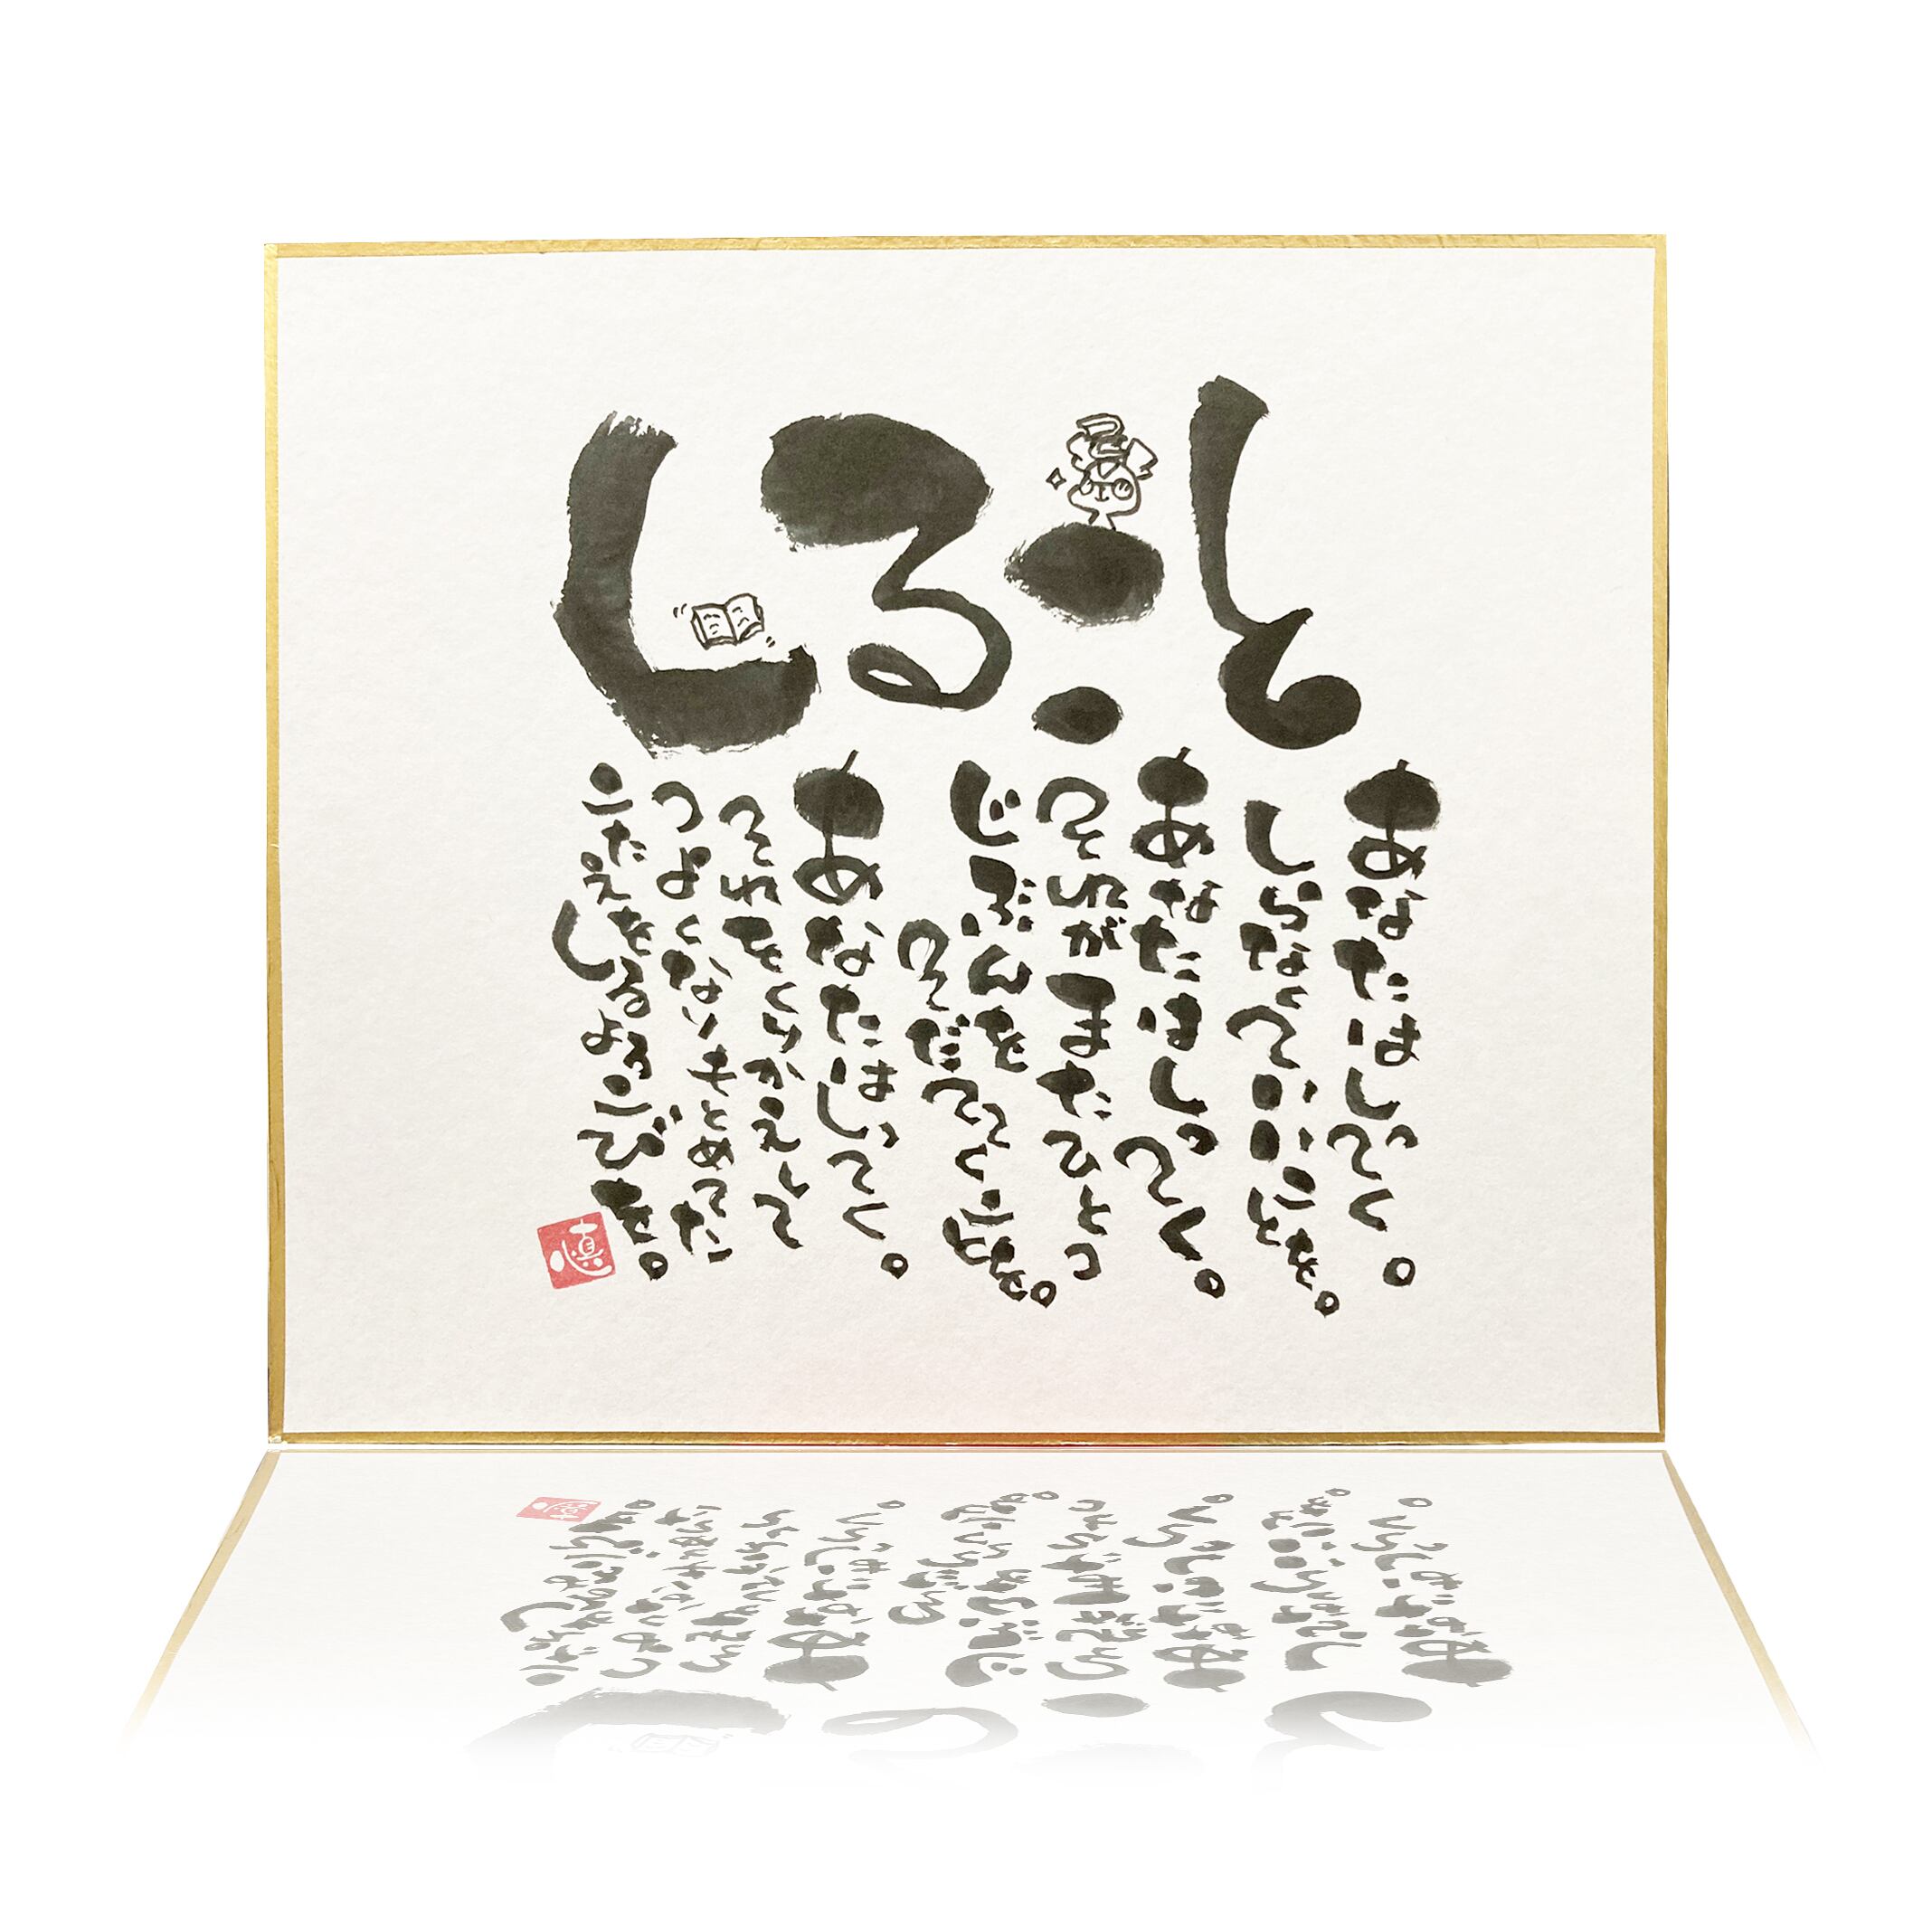 しること
あなたはしっていく。
しらなくていいことを。
あなたはしっていく。
それがまたひとつ
じぶんを
そだてていくことを。
あなたはしっていく。
それをくりかえして
つよくなりもとめてた
こたえをしるよろこびを。
慎